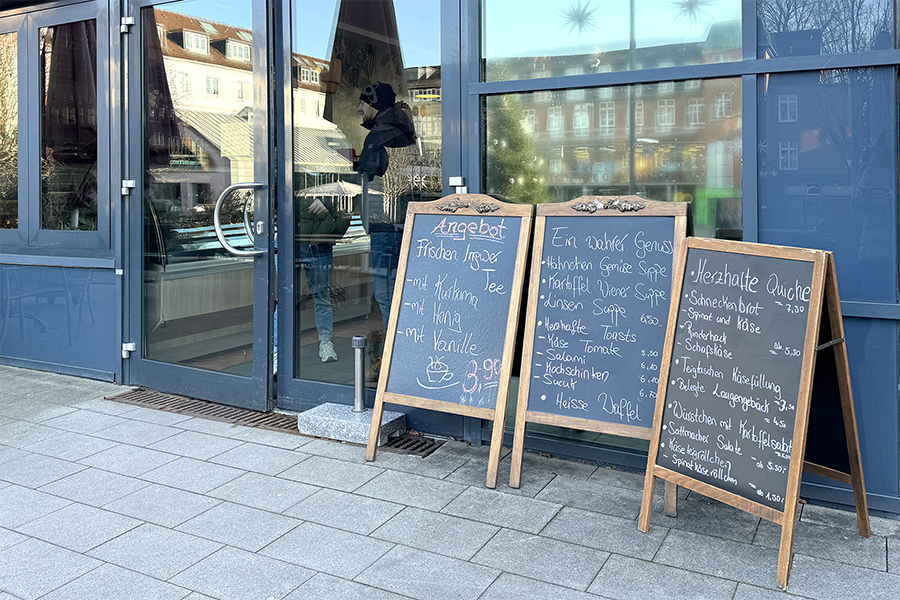 Angebot
Frischen Ingwer
Tee
- mit Kurkuma
- mit Honig
- mit Vanille
3,90
Ein wahrer Genuss
Hähnchen Gemüse Suppe
Kartoffel Wiener Suppe
Linsen Suppe 6,50
Herzhafte Toasts
- Käse Tomate 5,50
- Salami 6,10
- Kochschinken 6,10
- Sucuk
Heisse Waffel
Herzhafte Quiche
7,30
Schneckenbrot
- Spinat und Käse
- Rinderhack ab 5,50
Schafskäse
Teigtaschen Käsefüllung
Belegte Laugengebäck
ab 3,50
Würstchen mit Kartoffelsalat
Sattmacher Salate - ab 5,50
Käseigeröllchen
Spinat Käseröllchen
ab 1,30